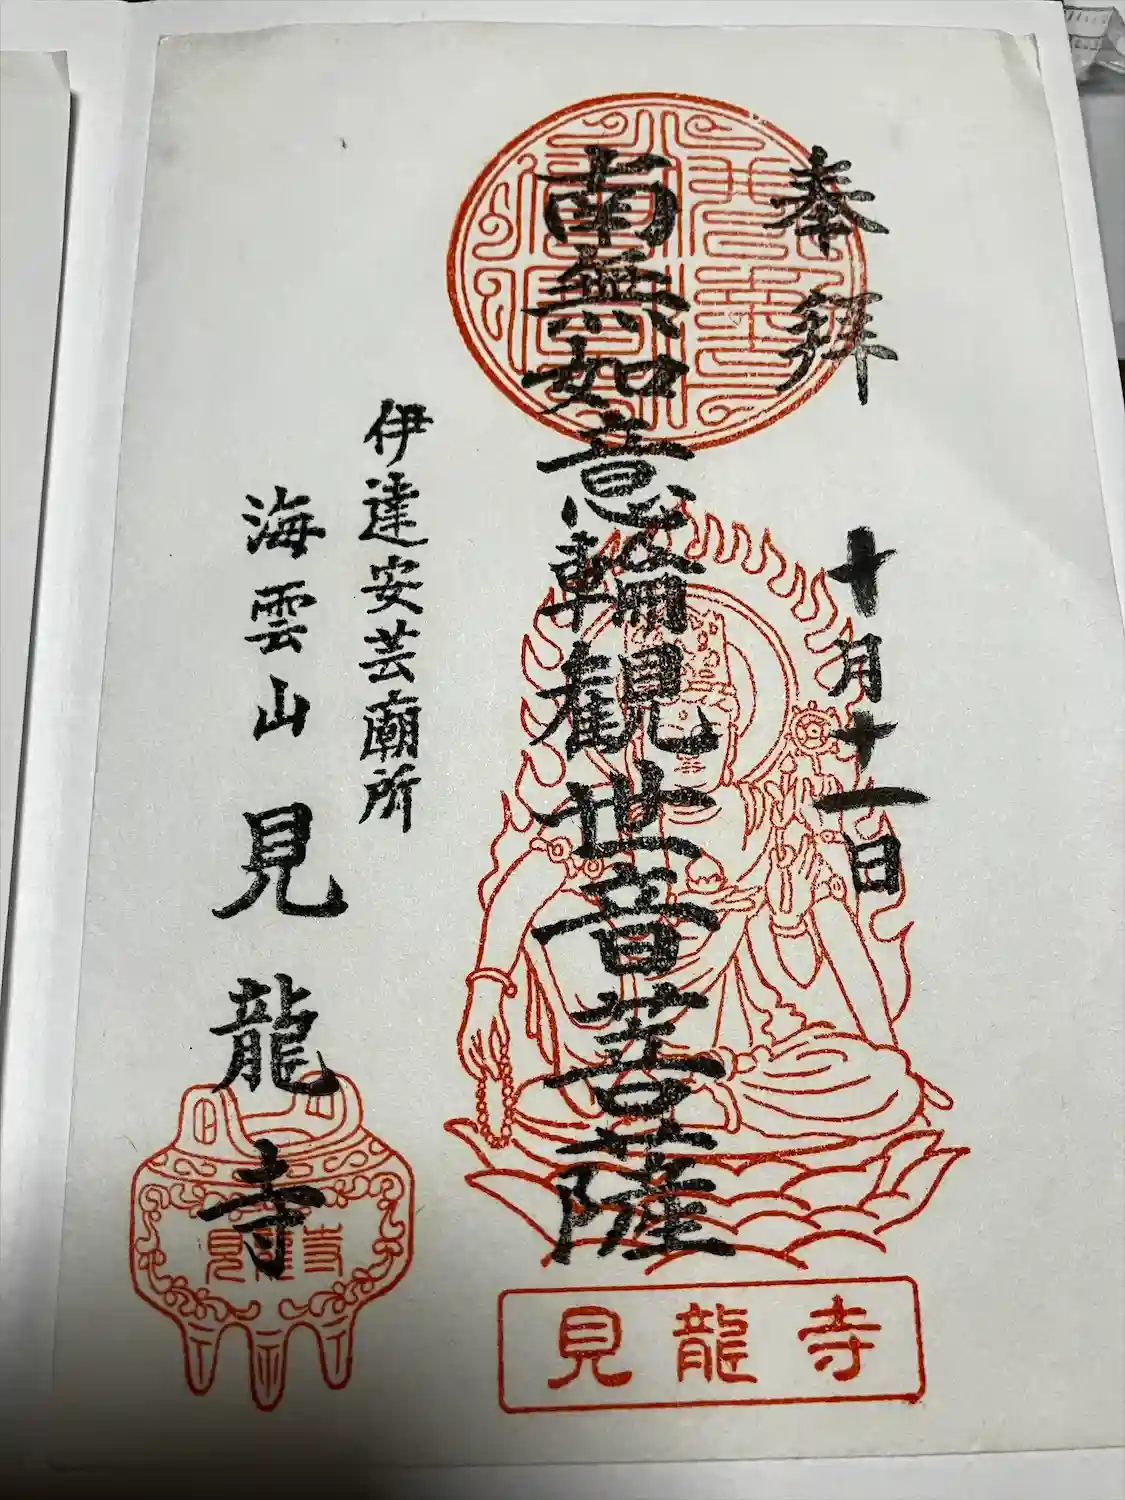 奉拜
十月十一日
南無如意輪観世音菩薩
伊達安芸廟所
海雲山見龍寺
見龍寺
見龍寺